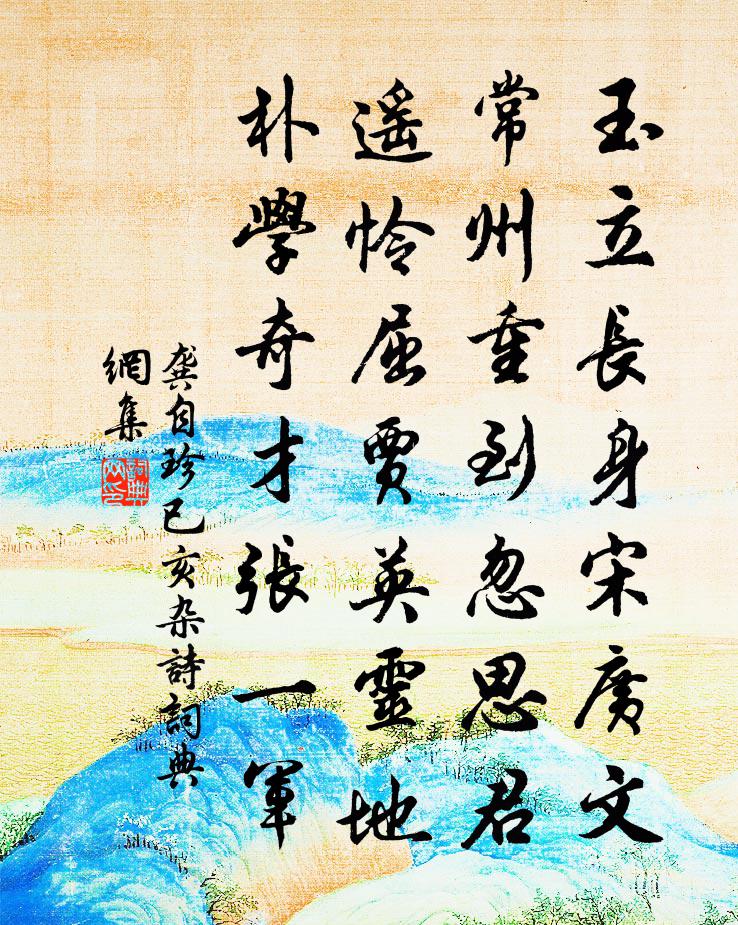 玉立長身宋廣文
常州重到忽思君
遥憐屈賈英靈地
朴學奇才張一軍
龔自珍己亥杂詩詞典
網集
詞典